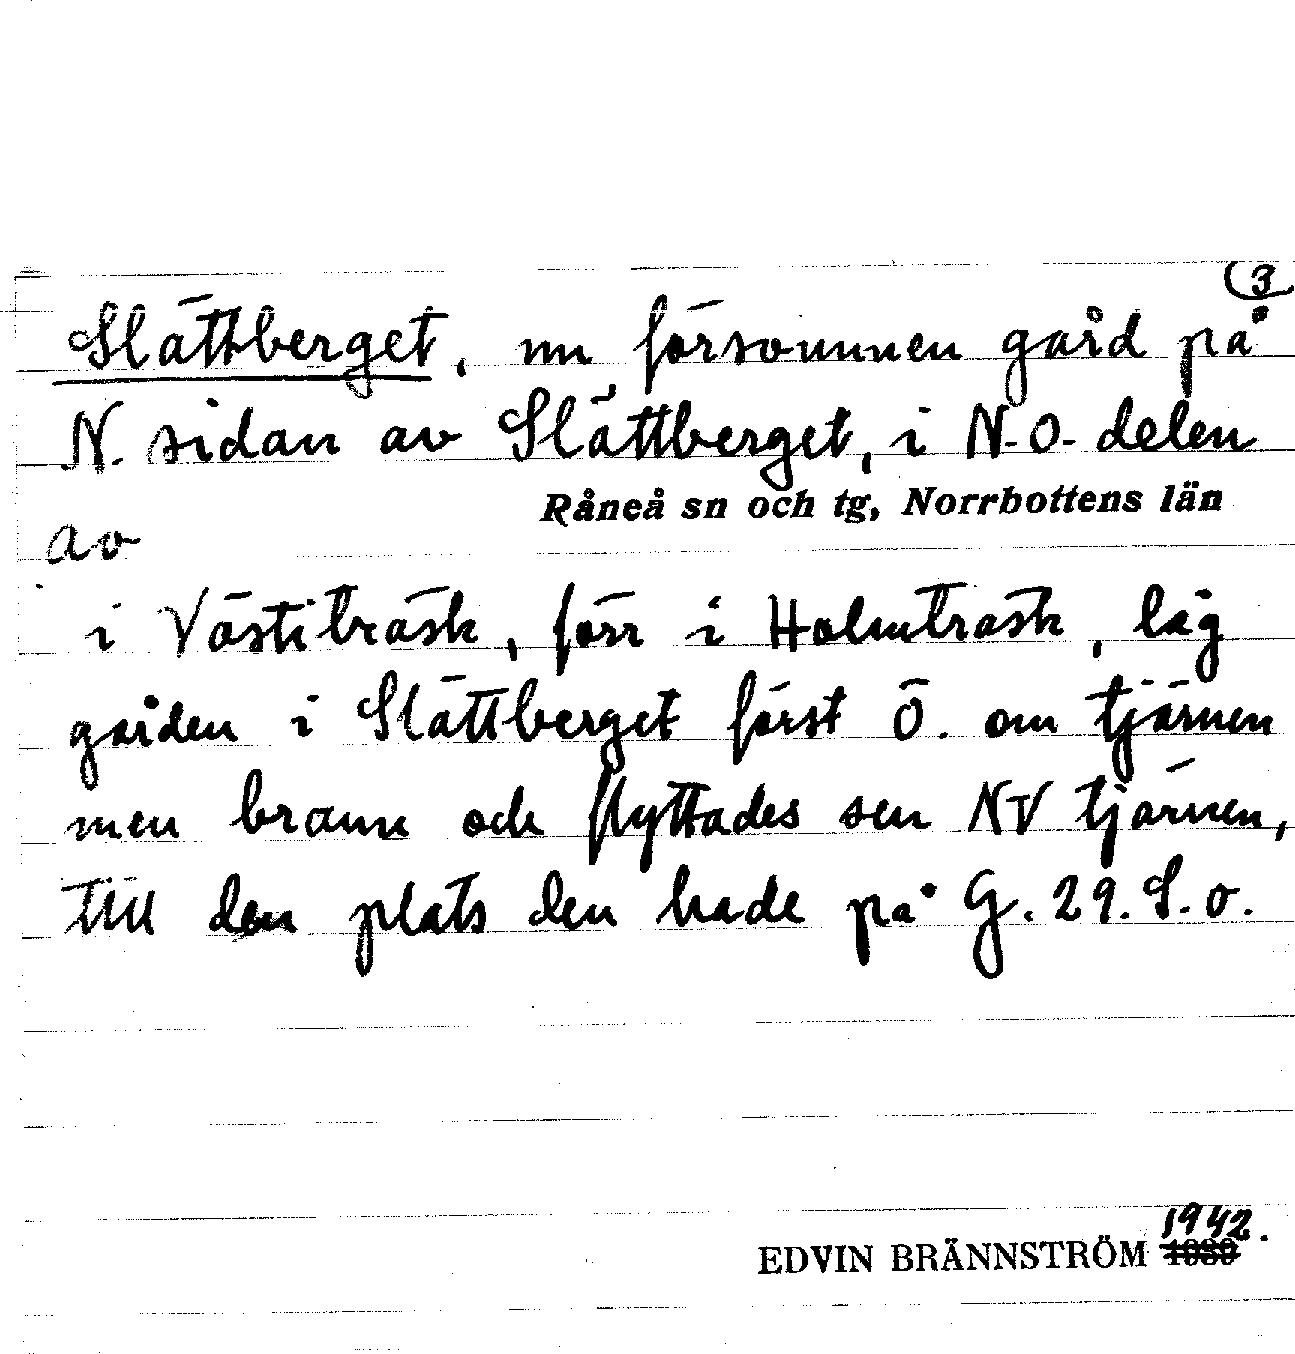 3
Slättberget, nu försvunnen gård på
N. sidan av Slättberget, i N.O. delen
Råneå sn och tg, Norrbottens län
av
i Västiträsk, förr i Holmträsk, låg
gården i Slättberget först Ö. om tjärnen
men brann och flyttades sen NV tjärnen,
till den plats den hade på G. 29. S.o.
1942.
EDVIN BRÄNNSTRÖM